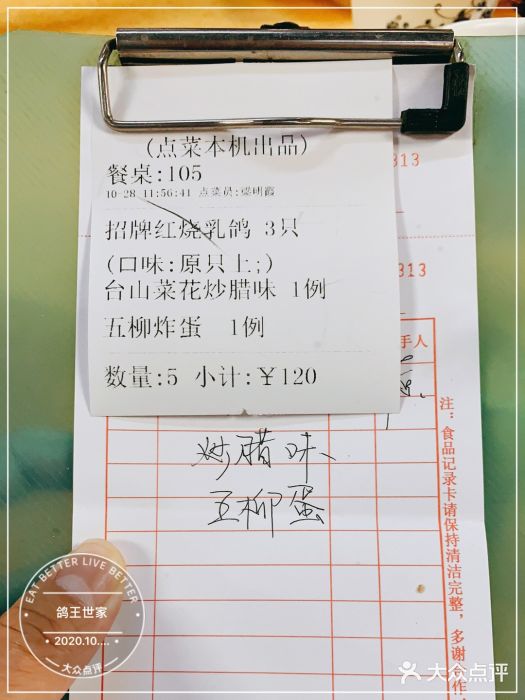 (点菜本机出品)
餐桌:105
10-28 11:56:41 点菜员:梁明霞
招牌红烧乳鸽 3只
(口味:原只上;)
台山菜花炒腊味 1例
五柳炸蛋 1例
数量:5 小计:¥120
313
313
手人
炒腊味、
五柳蛋
注:食品记录卡请保持清洁完整,多谢合作
EAT BETTER LIVE BETTER
鸽王世家
2020.10....
大众点评
大众点评